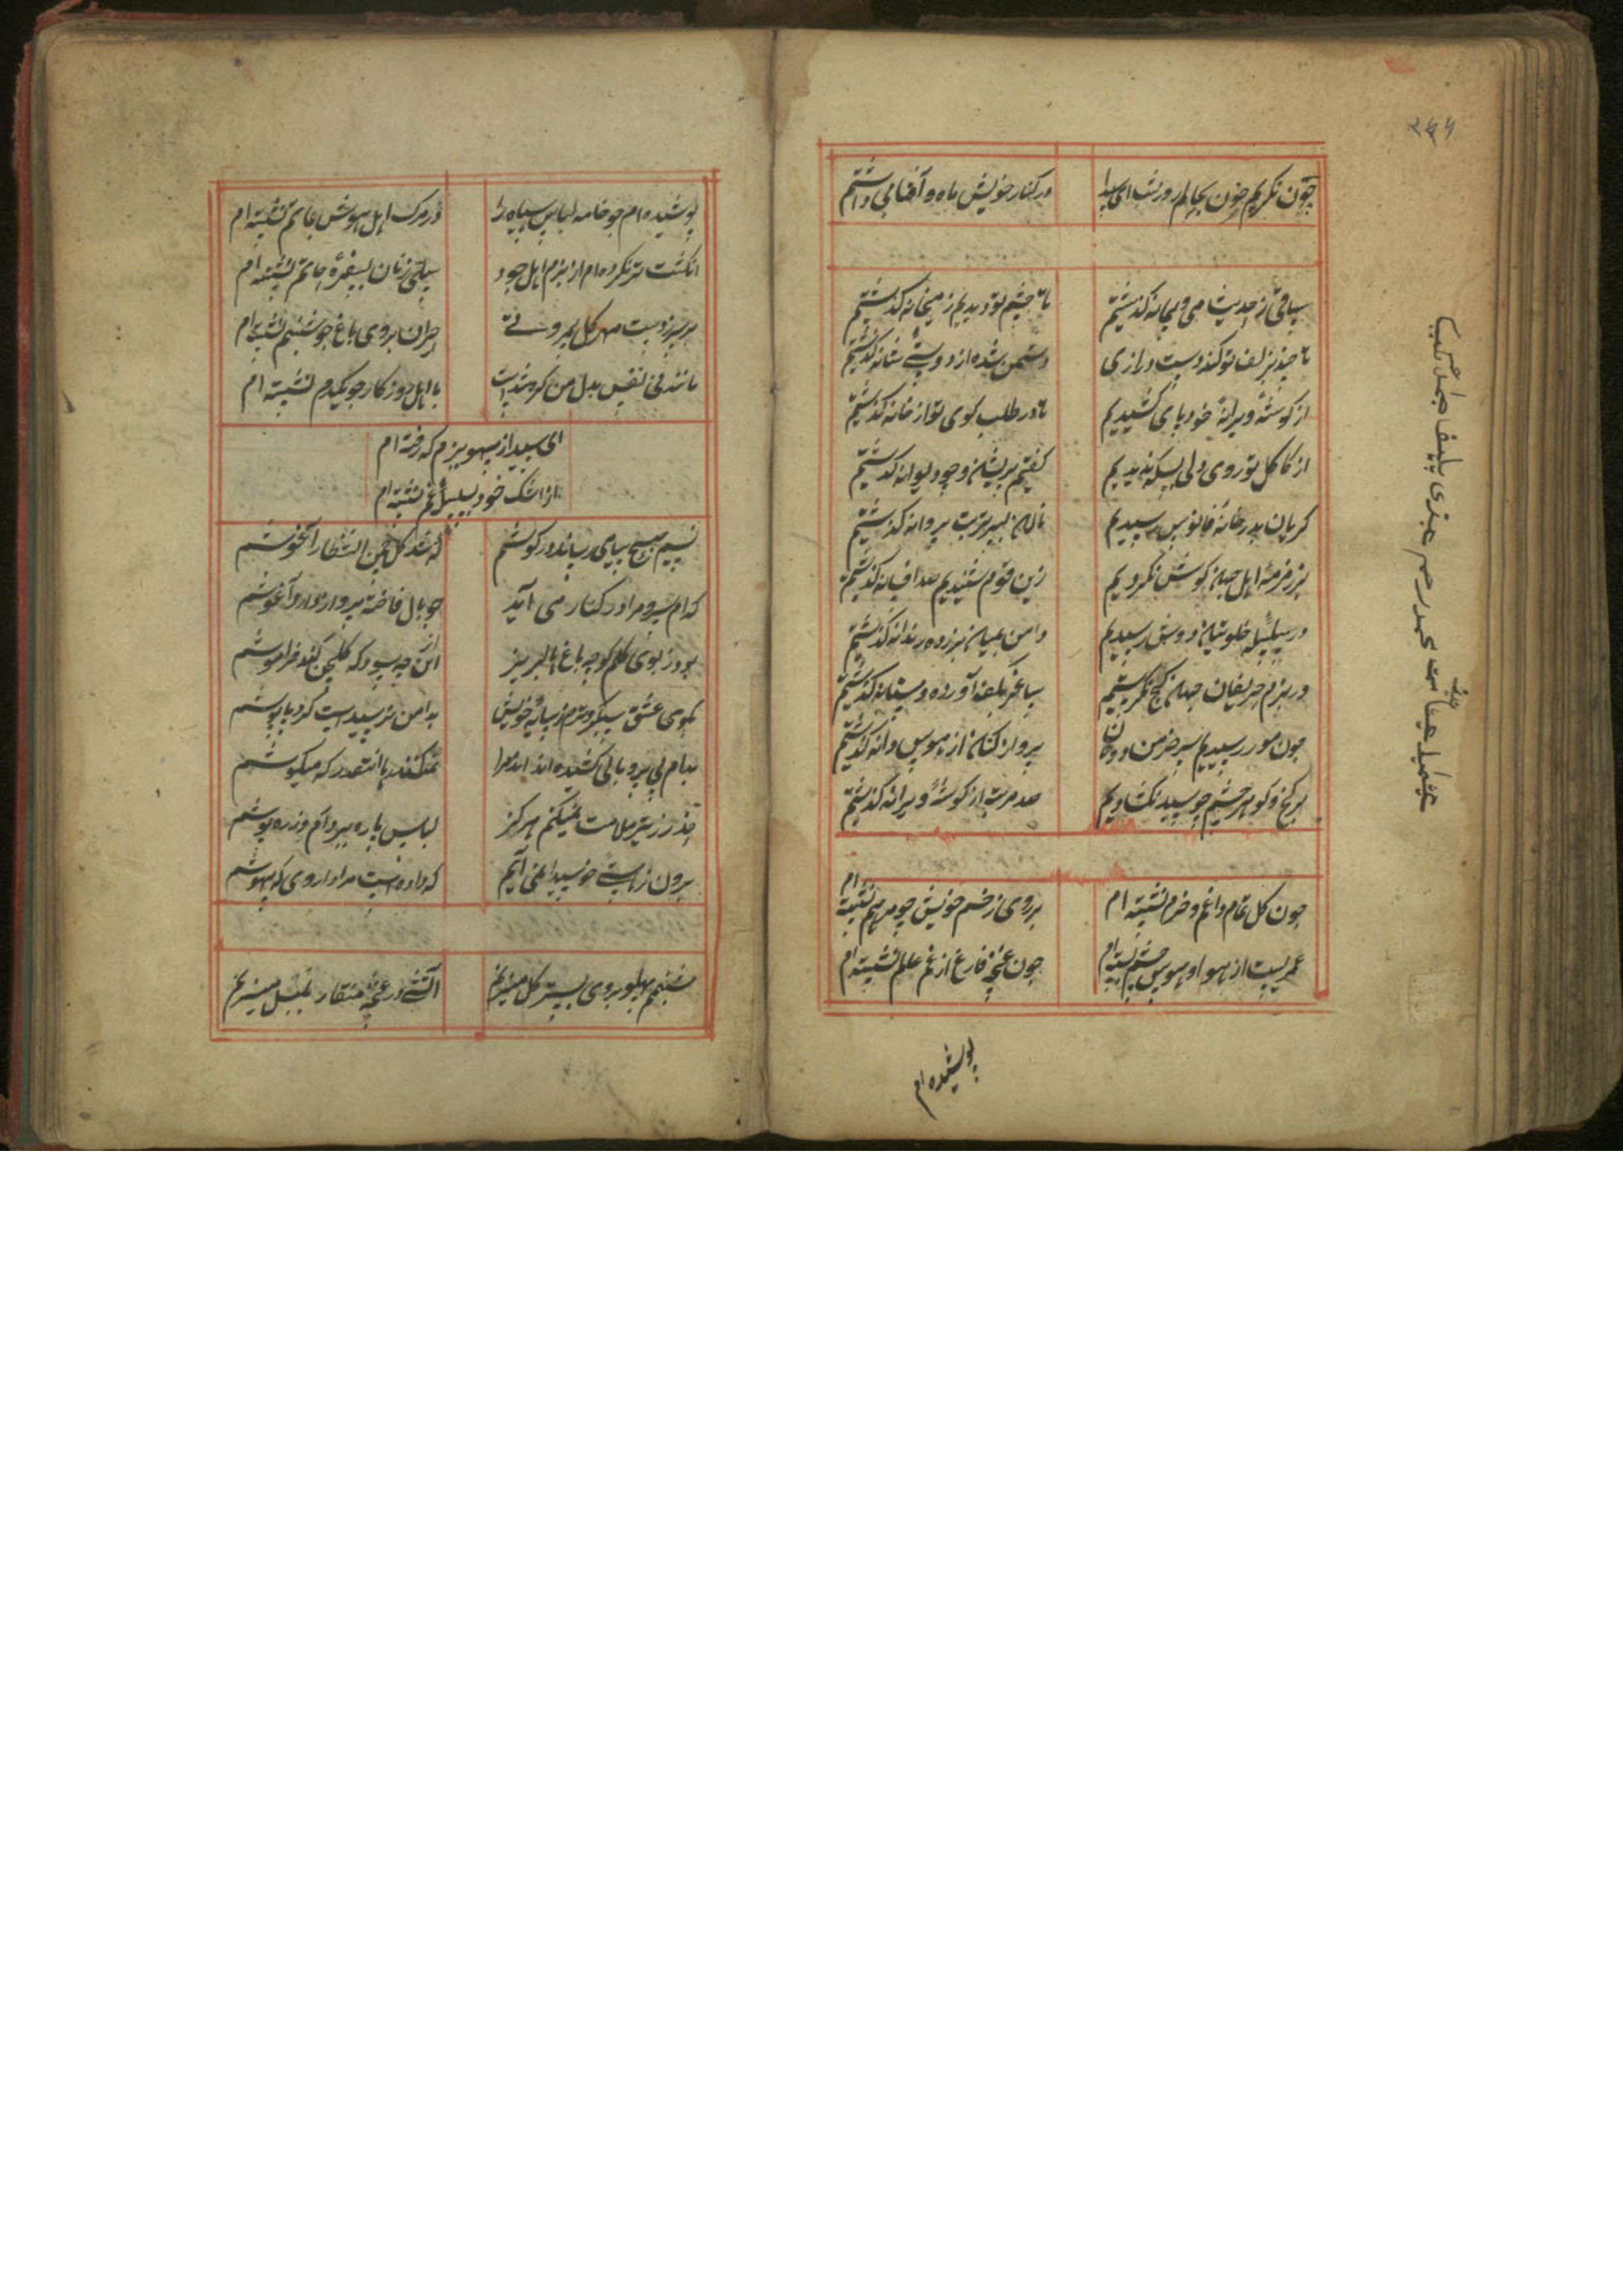 ۲۶۵
چون نکریم خون بجای لم روز شب ای سیدا
در کنار خویش ماه و آفتابی داشتم
ساقی ز حدیث می و پیمانه کذشتیم
تا چشم تو دیدیم ز میخانه کذشتیم
تا چند بزلف تو کند دست درازی
دشمن شده از دوستی شانه کذشتیم
از کوشهٔ ویرانهٔ خود پای کشیدیم
تا در طلب کوی تو از خانه کذشتیم
از کاکل تو روی دلی بسکه ندیدیم
کفتیم پریشان و چو دیوانه کذشتیم
کریان بدر خانهٔ فانوس رسیدیم
نالان بسر تربت پروانه کذشتیم
بر زمزمهٔ اهل جهان کوش نکردیم
زین قوم شنیدیم صد افسانه کذشتیم
در سلسلهٔ خلوتیان دوش رسیدیم
دامن بمیان برزده رندانه کذشتیم
در بزم حریفان جهان کج نکرستیم
ساغر بکف آورده و مستانه کذشتیم
چون مور رسیدیم بسر خرمن دونان
پرواز کنان از هوس دانه کذشتیم
بر کنج و کوهر چشم چو سید نکشادیم
صد مرتبه از کوشهٔ ویرانه کذشتیم
چون کل تمام داغم و خرم نشسته ام
بر روی زخم خویش چو مرهم نشسته ام
عمریست از هوا و هوس چشم بسته ام
چون غنچه فارغ از غم عالم نشسته ام
پوشیده ام
پوشیده ام چو خامه لباس سیاه را
در مرک اهل هوش بماتم نشسته ام
انکشت تر نکرده ام از بزم اهل جود
سیلی زنان بسفرهٔ حاتم نشسته ام
حیران بروی باغ چو شبنم نشسته ام
مانند نی نفس بدل من کره شدست
با اهل روزکار چو یکدم نشسته ام
ای سیدا ز پهلو بزم که رفته ام
از اشک خود بسیل غم نشسته ام
نسیم صبح پیامی رساند در کوشم
که شد کل چمن انتظار آغوشم
کدام سرو مرا در کنار می آید
چو بال فاخته پرواز دارد آغوشم
بود ز بوی کلم کوچه باغها لبریز
از آن چه سود که کلچین کند فراموشم
بکوی عشق سبکروترم ز سایهٔ خویش
بدامن نرسیدست کرد پاپوشم
ببام بی پر و بالی کشیده اند مرا
نمیکنند رها آنقدر که میکوشم
حذر ز تیر ملامت نمیکنم هرکز
لباس پاره بیر دارم و زره پوشم
برون ز خانه چو سیدا نمی آیم
که داده است مرا داروی که بیهوشم
شبنم پهلو بروی بستر کل میزنم
آتشی در غنچهٔ منقار بلبل میزنم